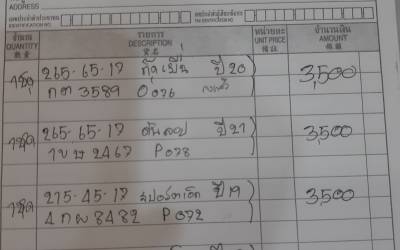 ADDRESS
เลขประจำตัวประชาชน
IDENTIFICATION NO.
จำนวน
QUANTITY
รายการ
DESCRIPTION
หน่วยละ
UNIT PRICE
จำนวนเงิน
AMOUNT
1ชุด 265-65-17 ปี 20 3,500
กต 3589 0076
1ชุด 265-65-17 ดันลอป ปี 21 3,500
1ขน 2467 P078
1ชุด 215-45-17 ปี 19 3,500
4กผ 8482 P072